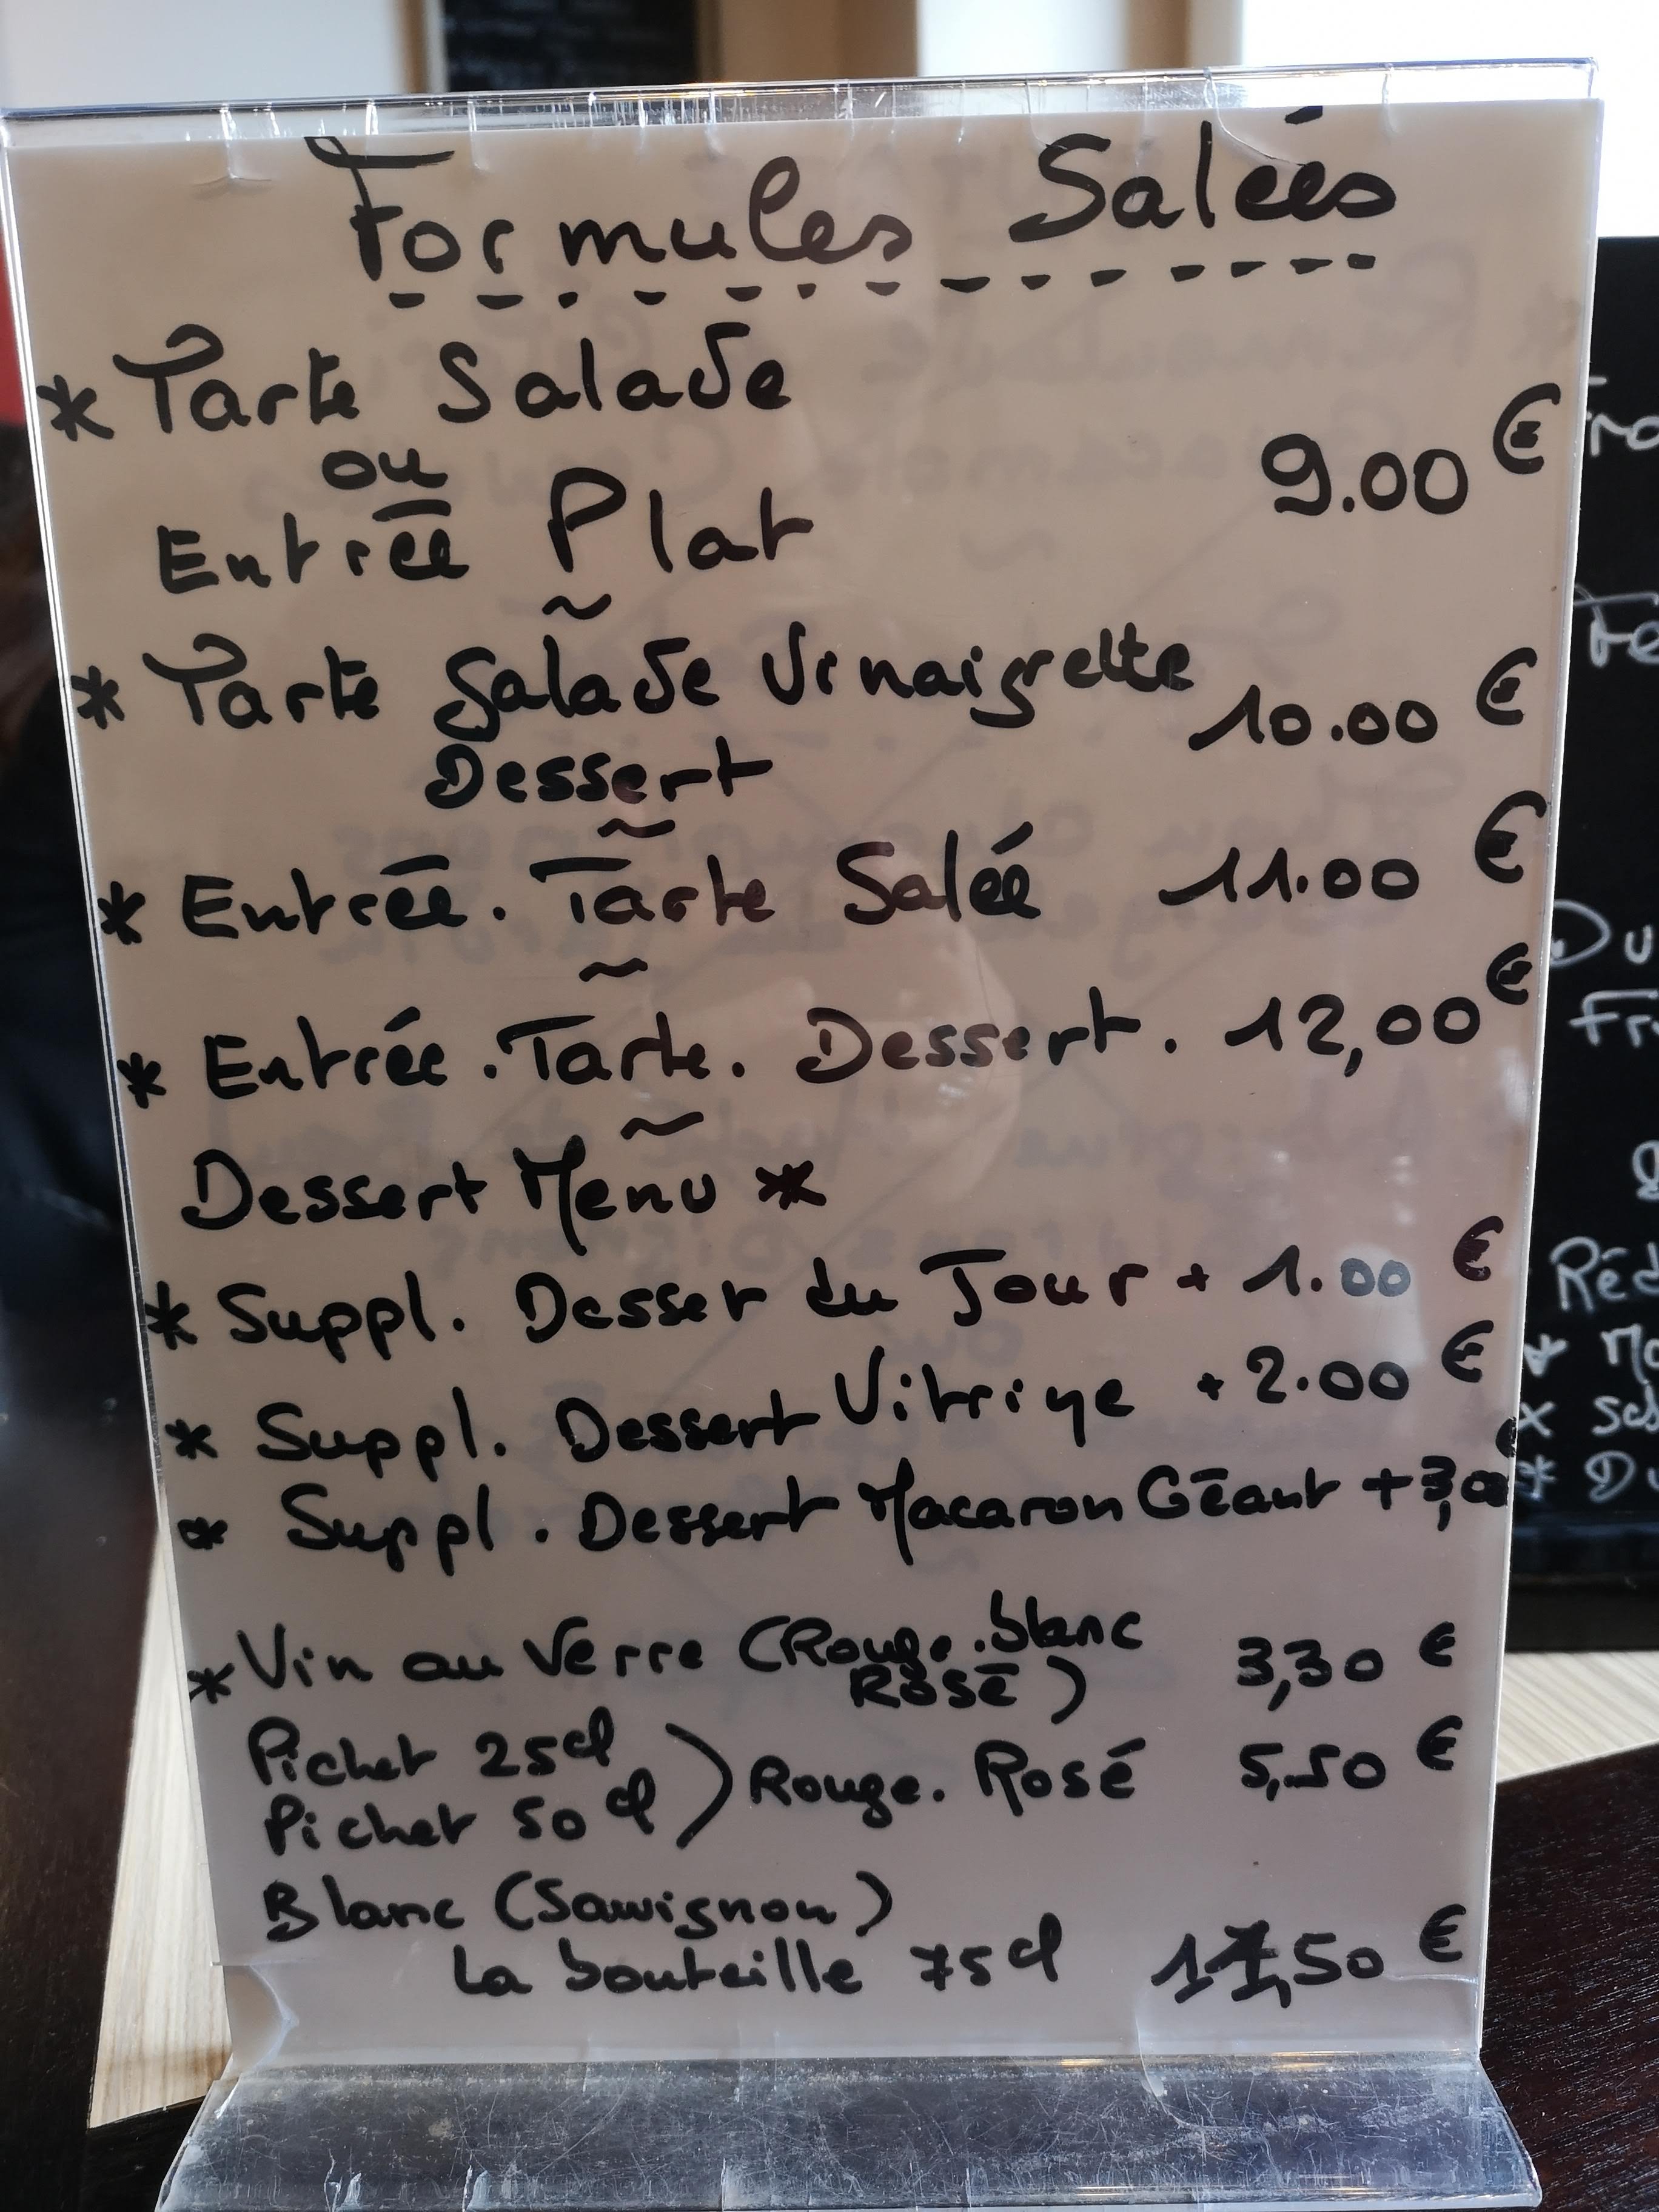 Formules Salées
* Tarte Salade
ou
Entrée Plat 9.00 €
~
* Tarte Salade Vinaigrette
Dessert 10.00 €
~
* Entrée. Tarte Salée 11.00 €
~
* Entrée. Tarte. Dessert. 12,00 €
~
Dessert Menu *
* Suppl. Desser du Jour + 1.00 €
* Suppl. Dessert Vitrine + 2.00 €
* Suppl. Dessert Macaron Géant + 3,00 €
* Vin au Verre (Rouge. blanc
Rosé) 3,30 €
Pichet 25cl
Pichet 50cl ) Rouge. Rosé 5,50 €
Blanc (Sauvignon)
La bouteille 75cl 17,50 €
Du
Réd
* Du